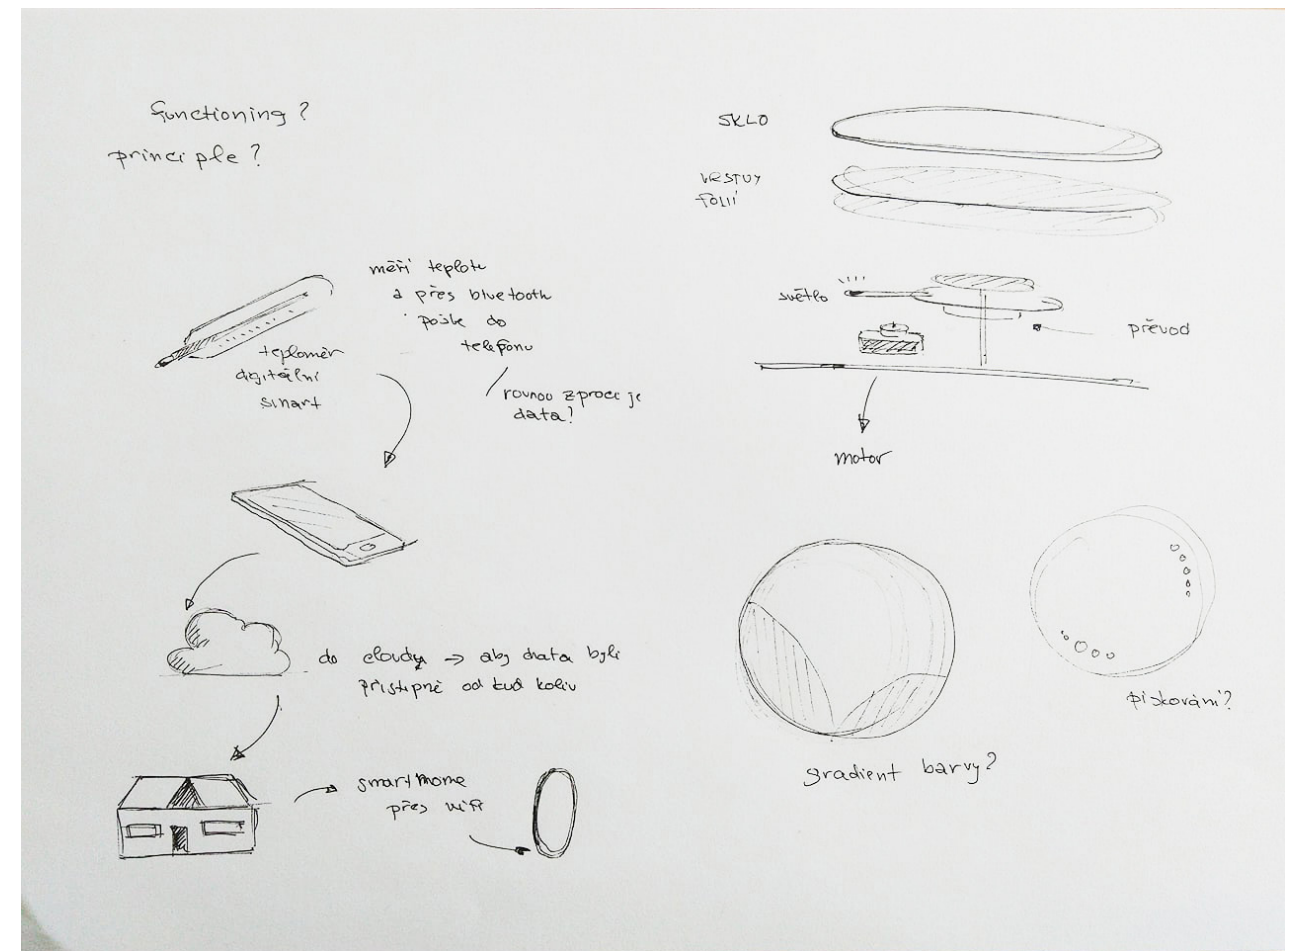 functioning?
principle?
měří teplotu
a přes bluetooth
pošle do
telefonu
/ rovnou zpracuje
data?
teploměr
digitální
smart
do cloudu → aby data byli
přístupné od kud koliv
smarthome
přes wifi
SKLO
VRSTVY
FOLIÍ
světlo
převod
motor
gradient barvy?
pískování?